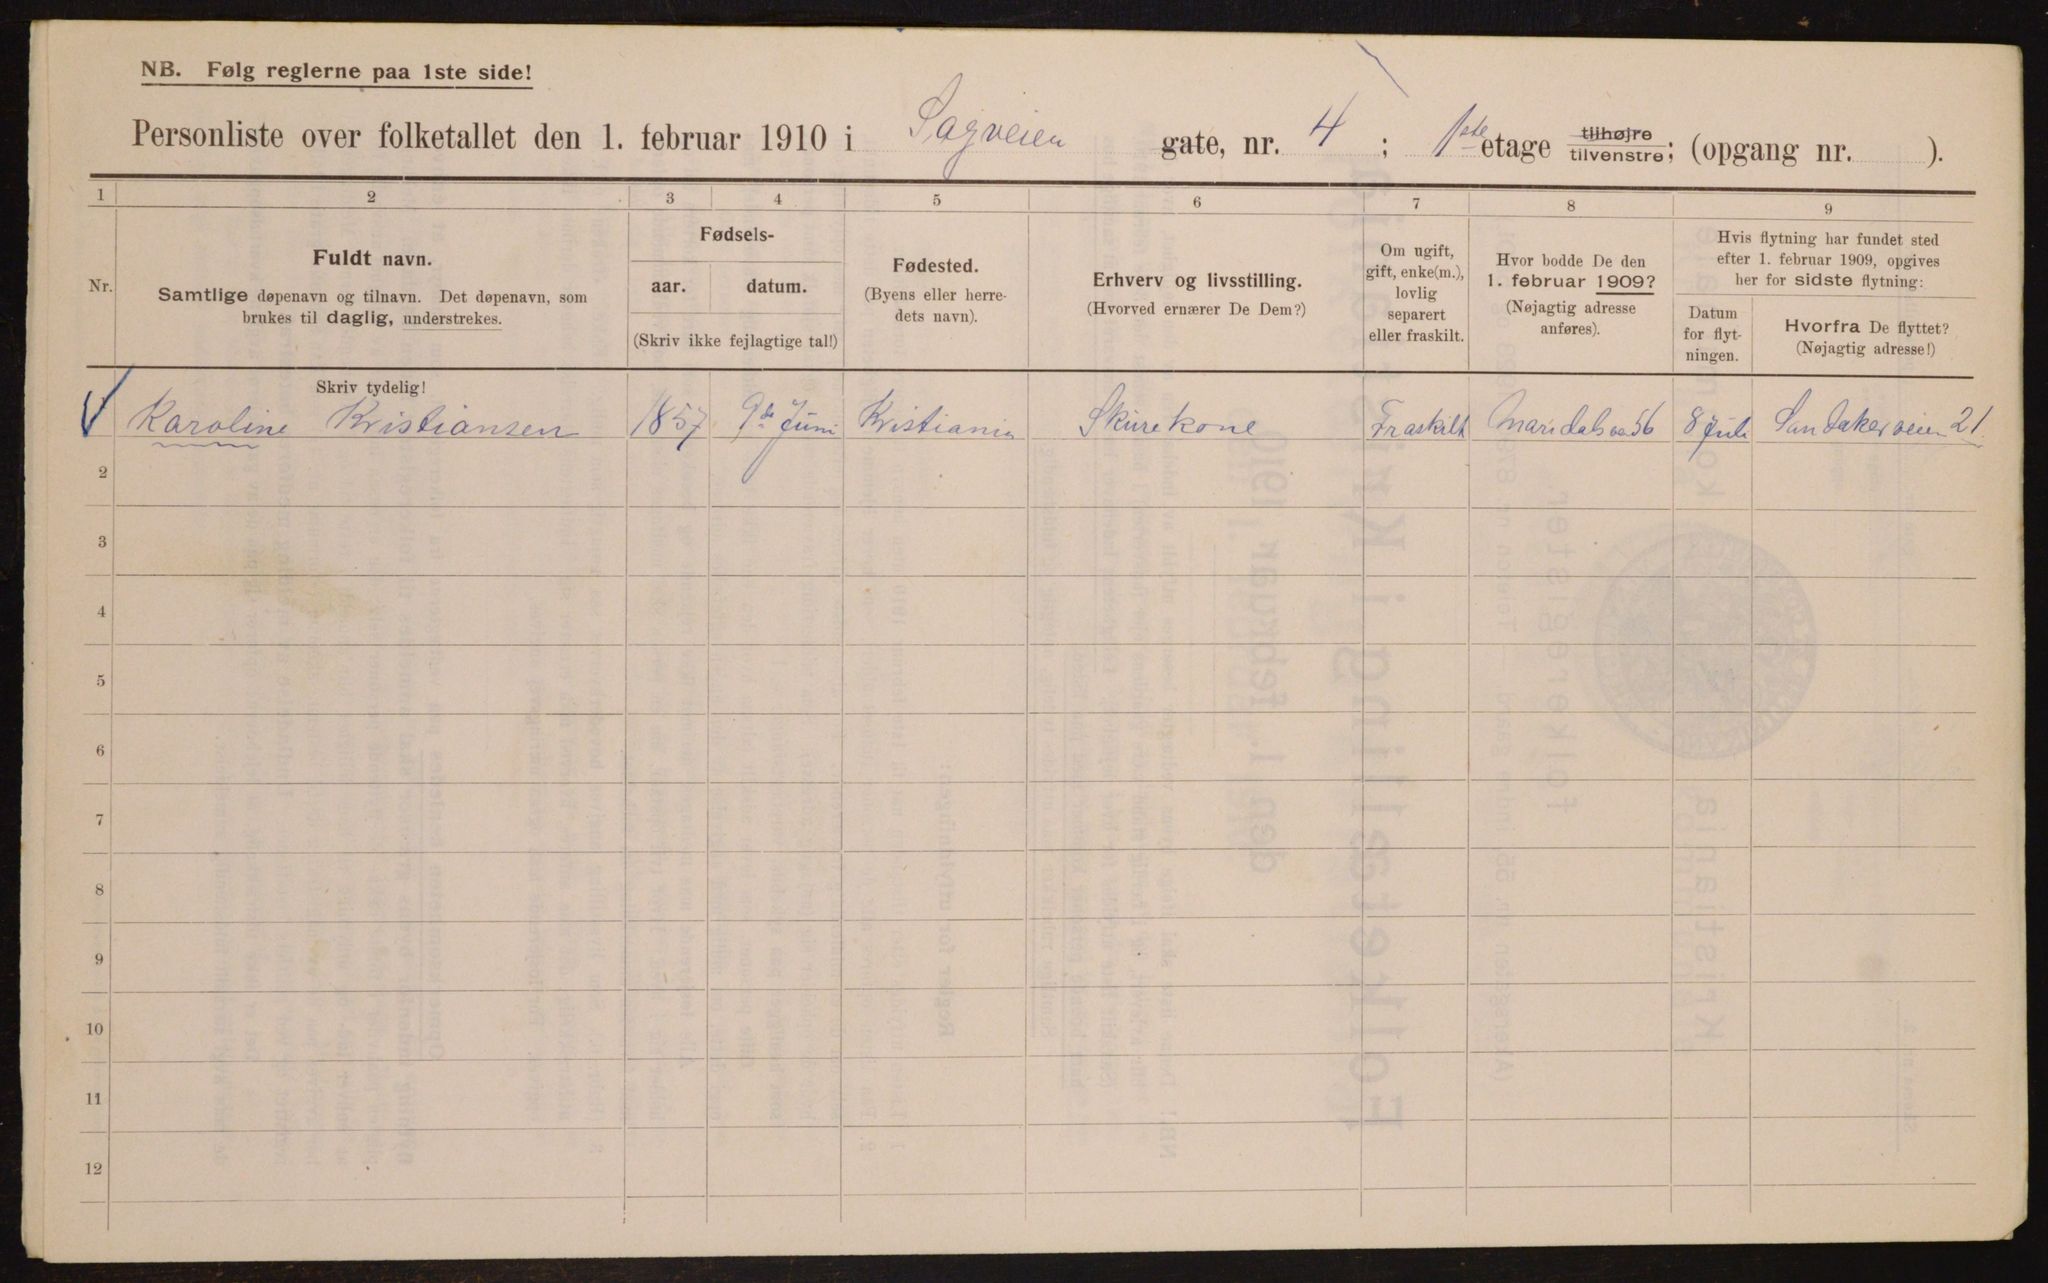 NB. Følg reglerne paa 1ste side!
Personliste over folketallet den 1. februar 1910 i Sagveien gate, nr. 4 ; 1ste etage tilhøjre tilvenstre; (opgang nr. ).
1 2 3 4 5 6 7 8 9
Nr.
Fuldt navn.
Samtlige døpenavn og tilnavn. Det døpenavn, som
brukes til daglig, understrekes.
Skriv tydelig!
Fødsels-
aar. datum.
(Skriv ikke fejlagtige tal!)
Fødested.
(Byens eller herre-
dets navn).
Erhverv og livsstilling.
(Hvorved ernærer De Dem?)
Om ugift,
gift, enke(m.),
lovlig
separert
eller fraskilt.
Hvor bodde De den
1. februar 1909?
(Nøjagtig adresse
anføres).
Hvis flytning har fundet sted
efter 1. februar 1909, opgives
her for sidste flytning:
Datum
for flyt-
ningen.
Hvorfra De flyttet?
(Nøjagtig adresse!)
Karoline Kristiansen 1857 9de Juni Kristiania Skurekone Fraskilt Maridalsv 56 8 Juli Sandakerveien 21
2
3
4
5
6
7
8
9
10
11
12